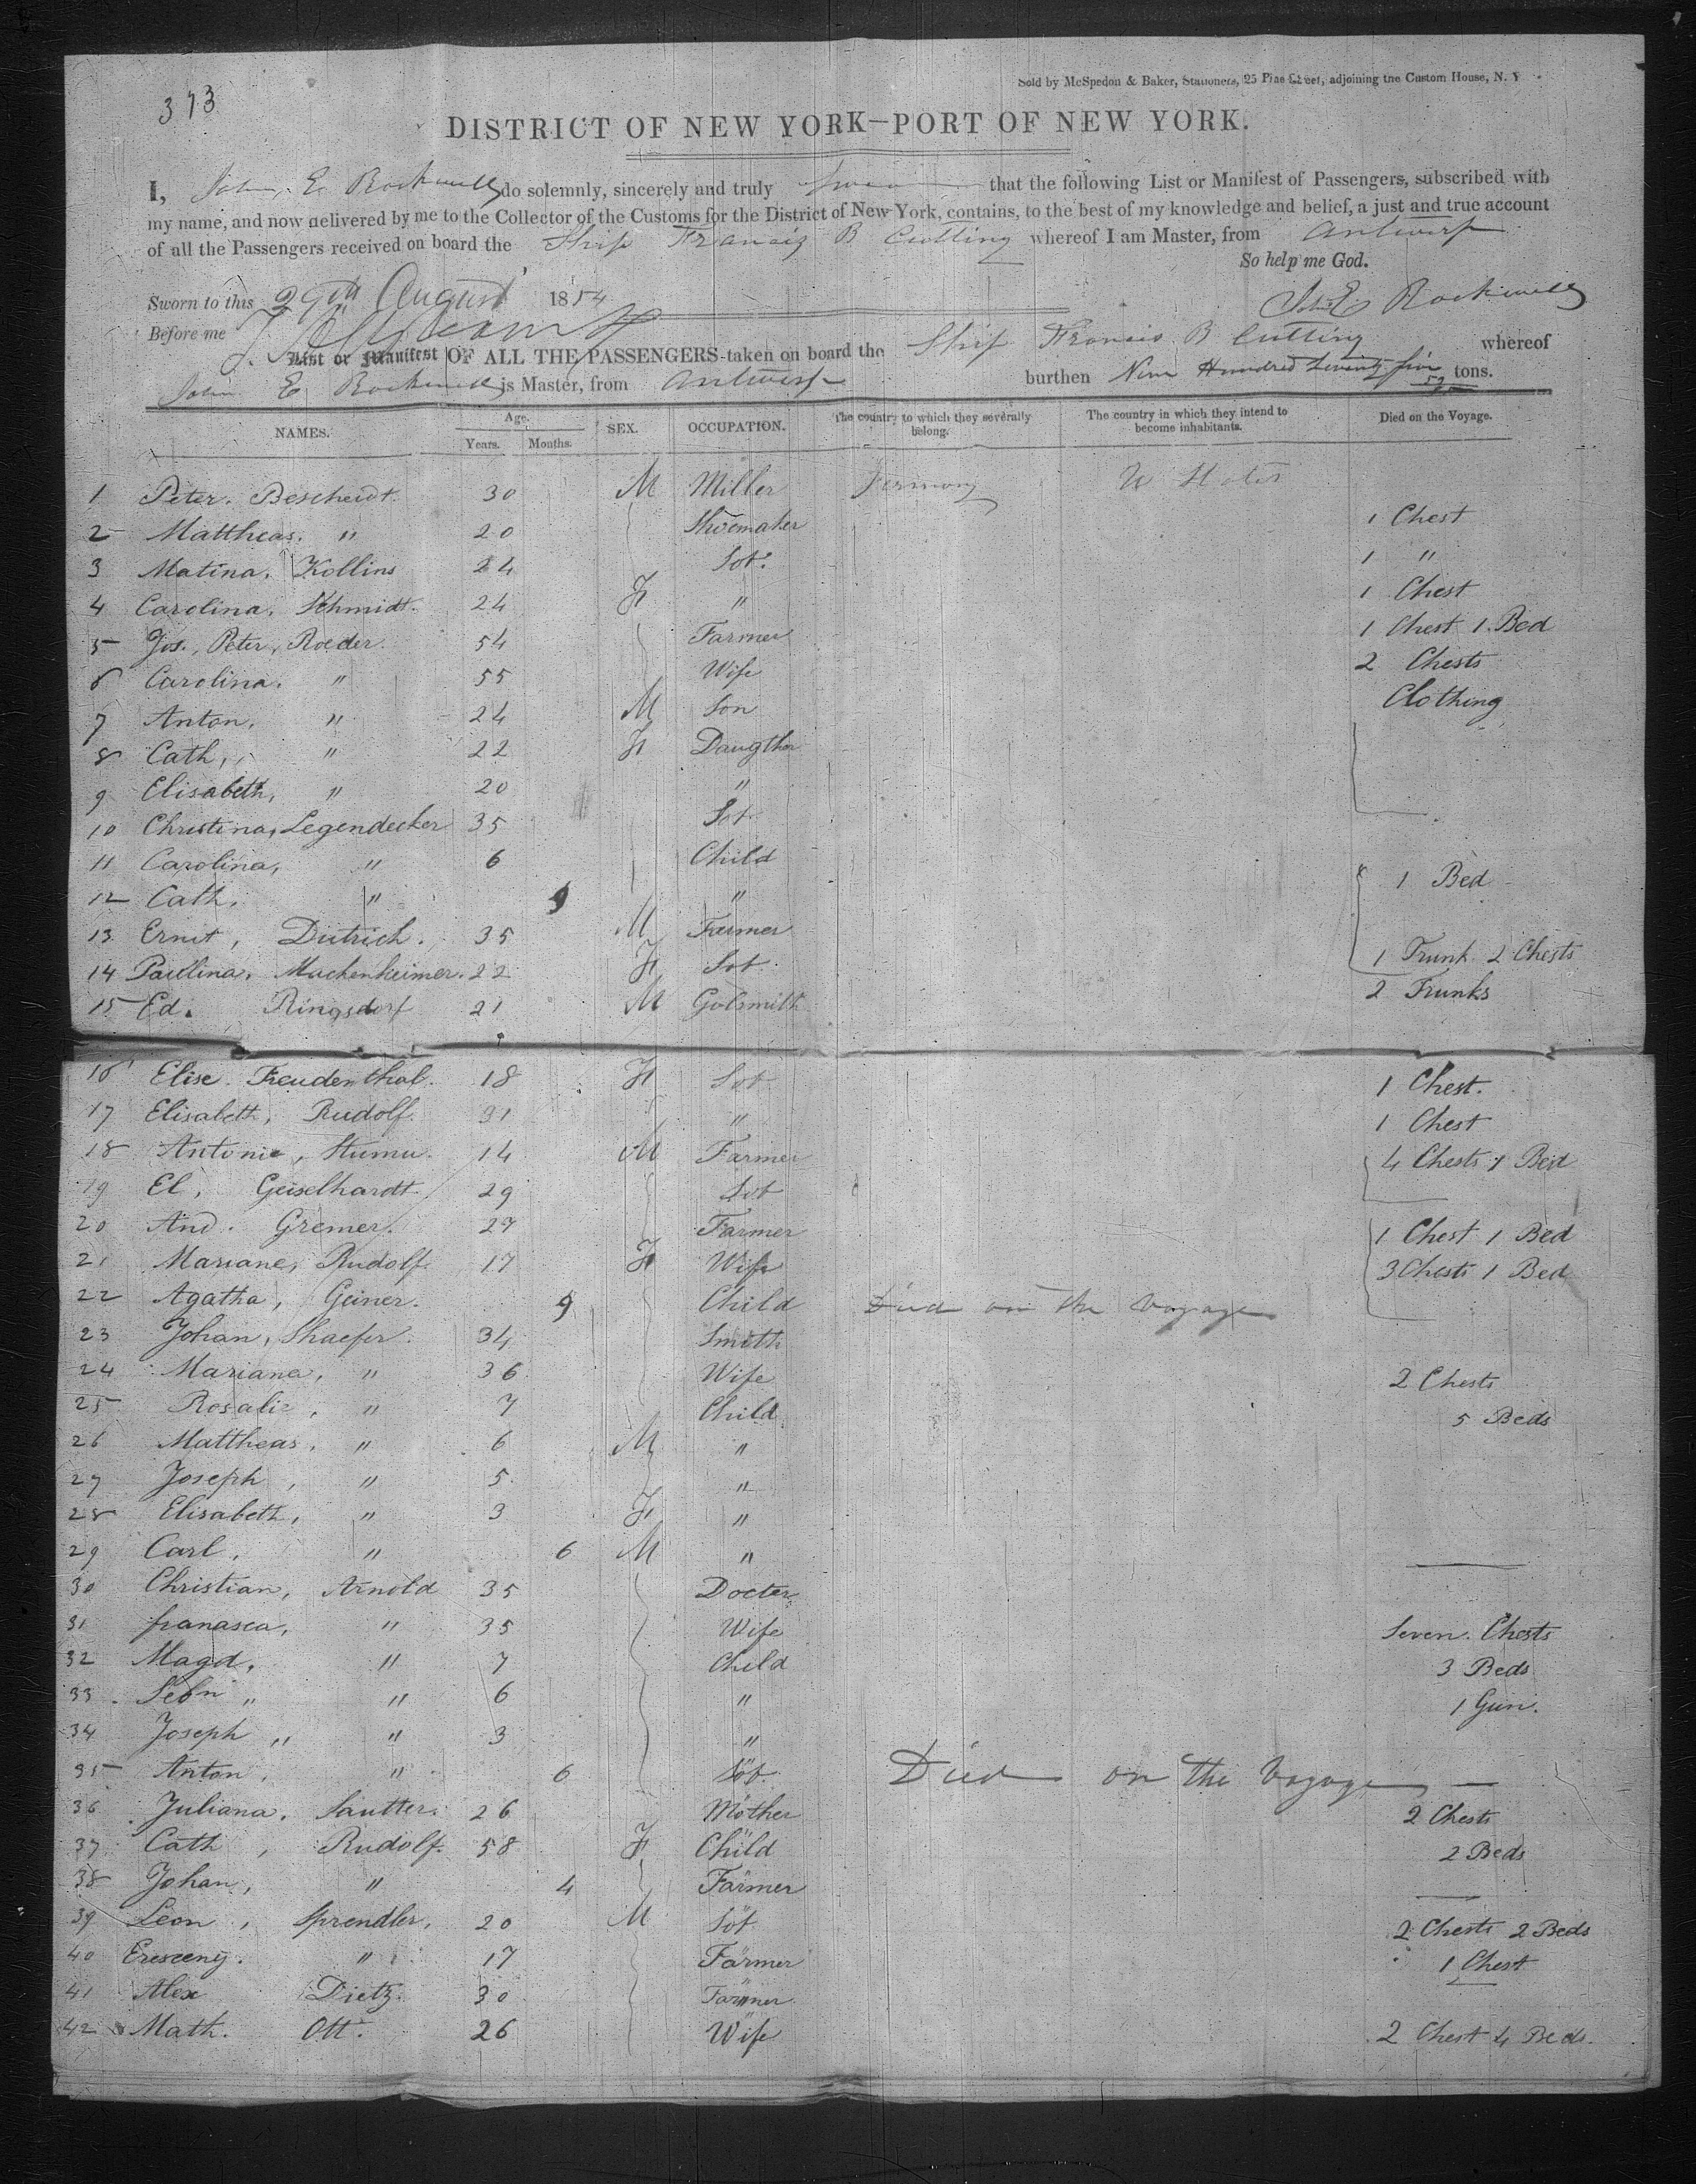 373
Sold by McSpedon & Baker, Stationers, 25 Pine Street, adjoining the Custom House, N. Y.
DISTRICT OF NEW YORK—PORT OF NEW YORK.
I, John E Rockwell do solemnly, sincerely and truly Swear that the following List or Manifest of Passengers, subscribed with
my name, and now delivered by me to the Collector of the Customs for the District of New York, contains, to the best of my knowledge and belief, a just and true account
of all the Passengers received on board the Ship Francis B Cutting whereof I am Master, from Antwerp
So help me God.
Sworn to this 29th August 1854
John E Rockwell
Before me
List or Manifest OF ALL THE PASSENGERS taken on board the Ship Francis B Cutting whereof
John E Rockwell is Master, from Antwerp burthen Nine Hundred Seventy five tons.
NAMES. Age. Years. Months. SEX. OCCUPATION. The country to which they severally belong. The country in which they intend to become inhabitants. Died on the Voyage.
1 Peter. Bescheidt. 30 M Miller Germany U States
2 Mattheas. " 20 Shoemaker 1 Chest
3 Matina. Kollins 24 Sot. 1 "
4 Carolina. Schmidt. 24 F " 1 Chest
5 Jos., Peter, Roeder. 54 Farmer 1 Chest 1 Bed
6 Carolina. " 55 Wife 2 Chests
7 Anton, " 24 M Son Clothing
8 Cath, " 22 F Daugther
9 Elisabeth, " 20 "
10 Christina, Legendecker 35 Sot
11 Carolina, " 6 Child
12 Cath, " 9 " 1 Bed
13 Ernst, Dietrich. 35 M Farmer
14 Paulina. Muchenheimer. 22 F Sot. 1 Trunk 2 Chests
15 Ed. Ringsdorf 21 M Golsmith 2 Trunks
16 Elise. Freudenthal. 18 F Sot 1 Chest.
17 Elisabeth, Rudolf. 31 " 1 Chest
18 Antonie, 14 M Farmer 4 Chests 1 Bed
19 El, Geiselhardt. 29 Sot
20 And. Gremer. 27 Farmer 1 Chest 1 Bed
21 Mariane, Rudolf. 17 F Wife 3 Chests 1 Bed
22 Agatha, Geiner. 9 Child Died on the Voyage
23 Johan, Shaefer. 34 Smith
24 Mariana, " 36 Wife 2 Chests
25 Rosalie, " 7 Child 5 Beds
26 Mattheas, " 6 M "
27 Joseph, " 5 "
28 Elisabeth, " 3 F "
29 Carl, " 6 M "
30 Christian, Arnold 35 Docter
31 franasca, " 35 Wife Seven. Chests
32 Magd, " 7 Child 3 Beds
33 Sebn " " 6 " 1 Gun.
34 Joseph " " 3 "
35 Anton, " 6 Sot. Died on the Voyage
36 Juliana. Sautter. 26 Mother 2 Chests
37 Cath, Rudolf. 58 F Child 2 Beds
38 Johan, " 4 Farmer
39 Leon, Sprendler, 20 M Sot 2 Chests 2 Beds
40 " 17 Farmer 1 Chest
41 Alex Dietz. 30 Farmer
42 Math. Ott. 26 Wife 2 Chest 4 Beds.